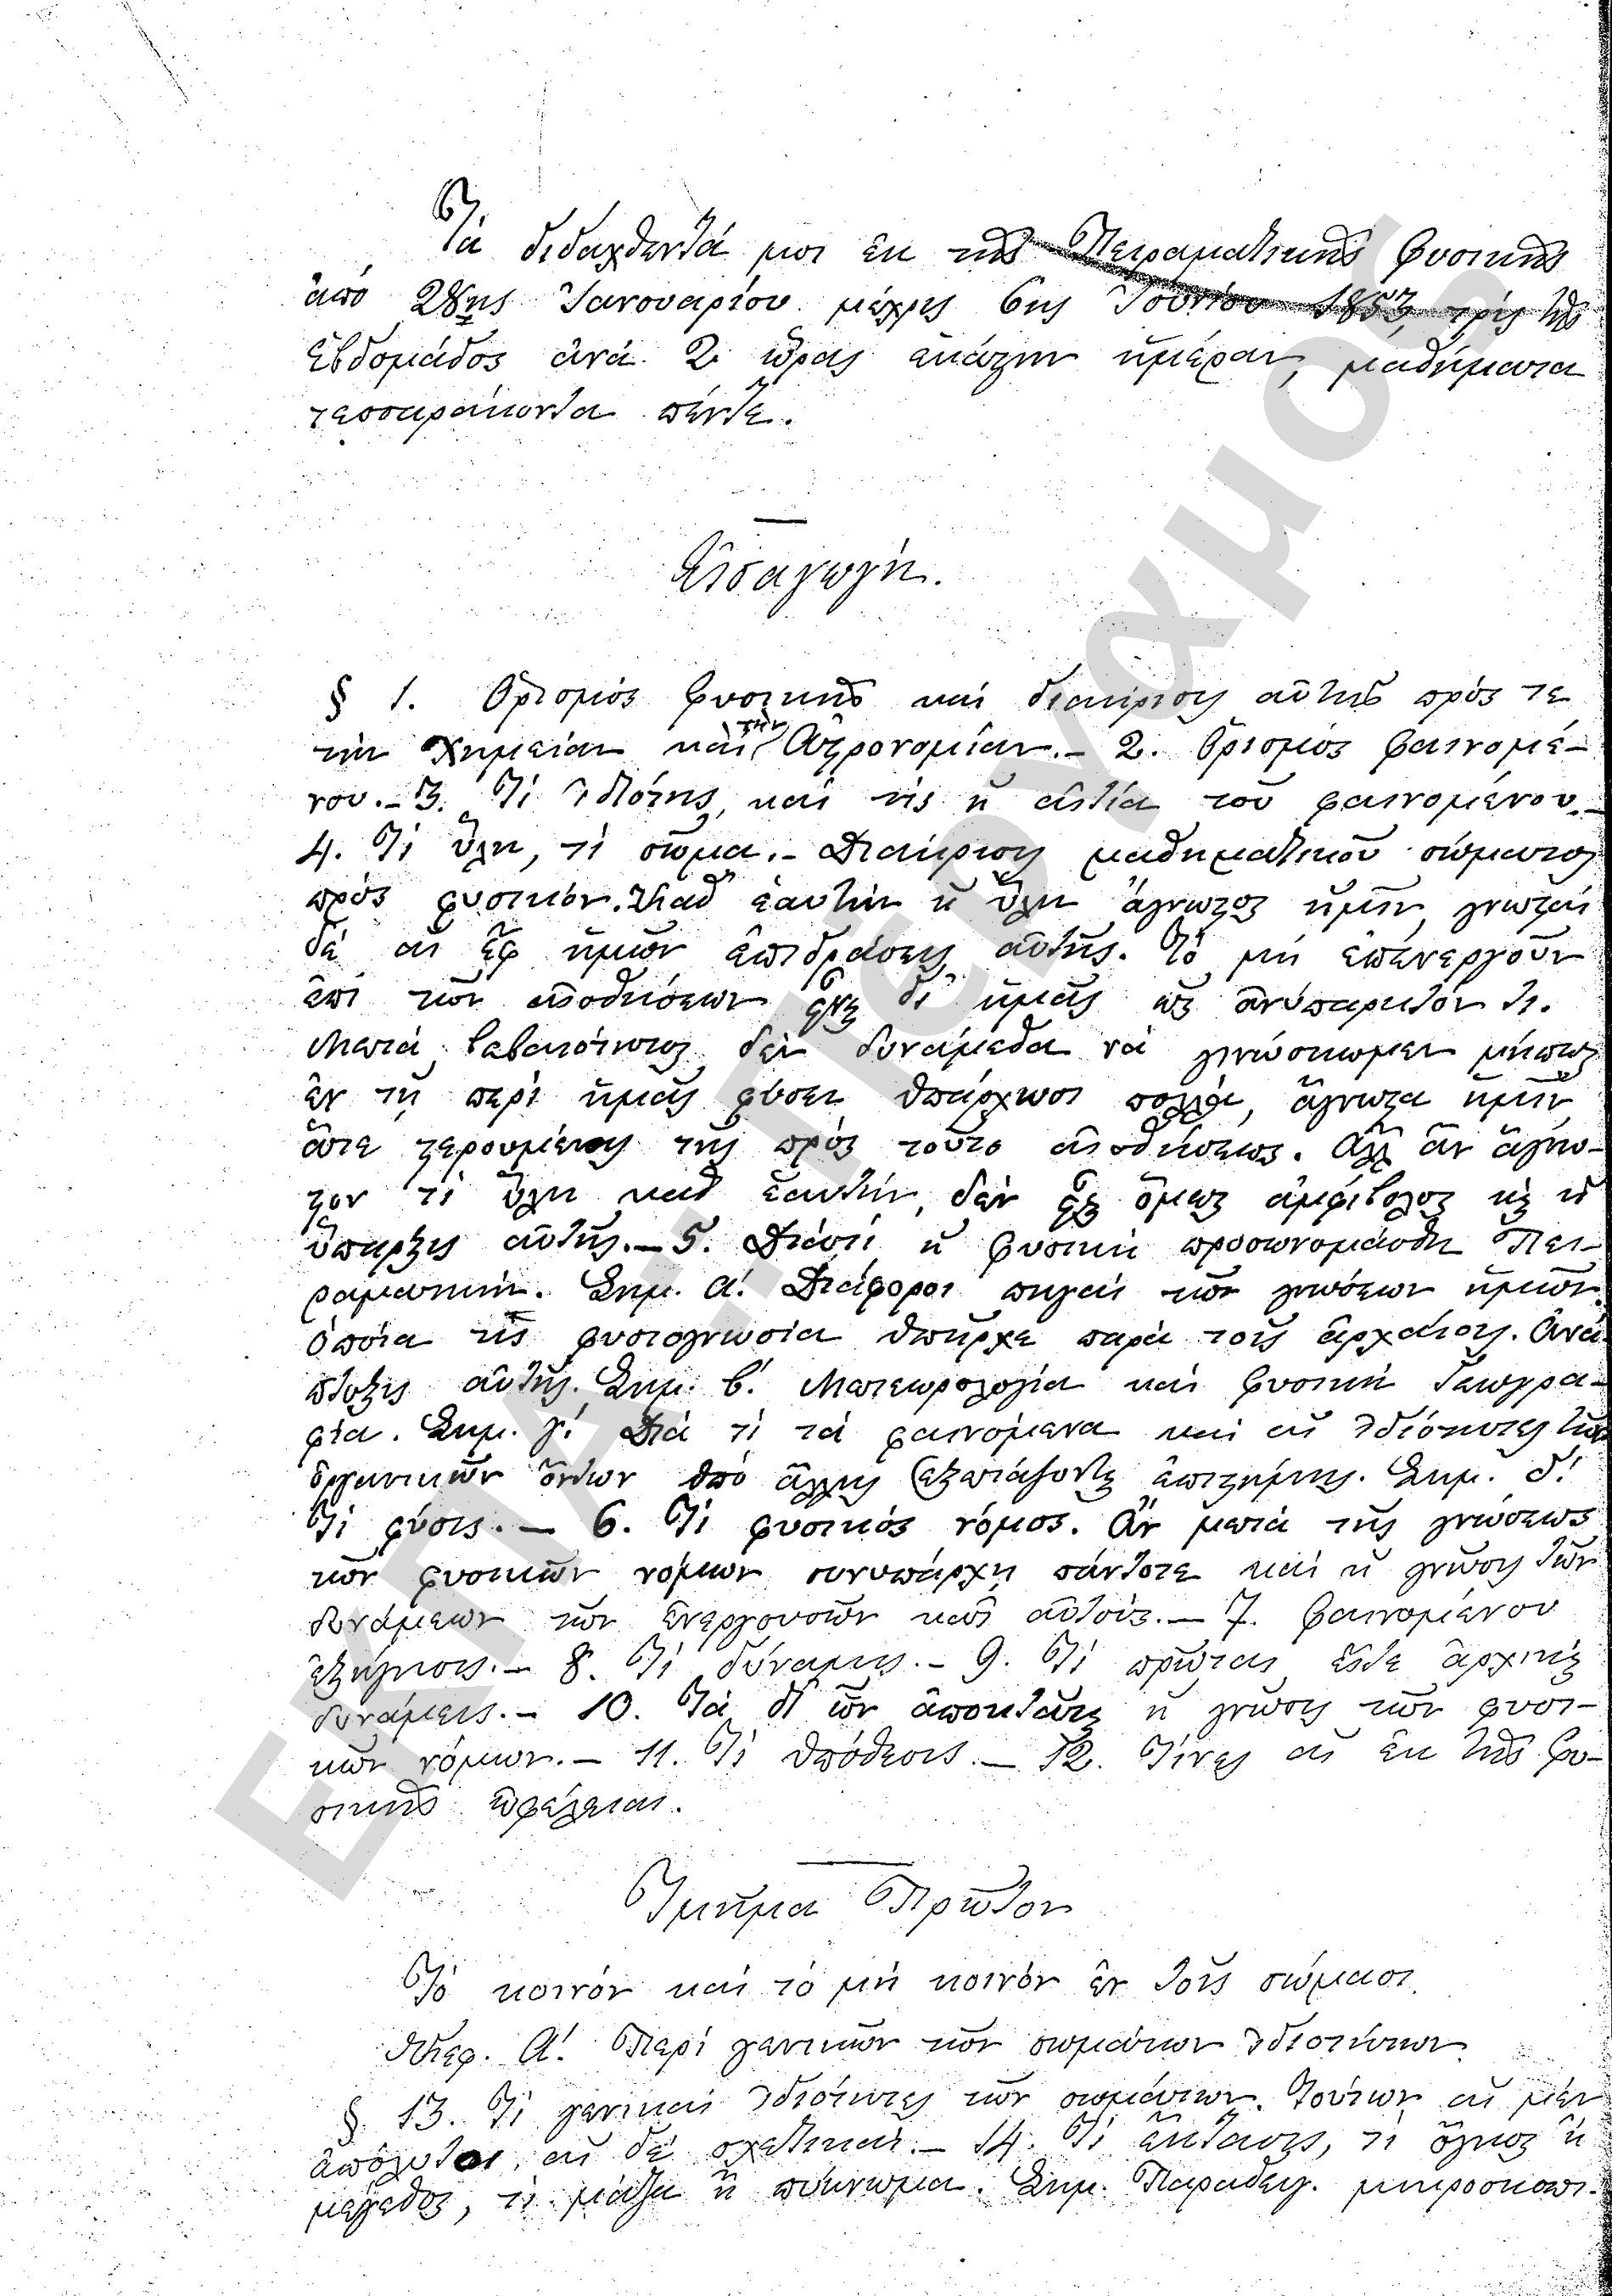 Τὰ διδαχθέντά μοι ἐκ τῆς Πειραματικῆς Φυσικῆς
ἀπὸ 28ης Ἰανουαρίου μέχρις 6ης Ἰουνίου 1853, τρὶς τῆς
ἑβδομάδος ἀνὰ 2 ὥρας ἑκάστην ἡμέραν, μαθήματα
τεσσαράκοντα πέντε.
Εἰσαγωγή.
§ 1. Ὁρισμὸς Φυσικῆς καὶ διάκρισις αὐτῆς πρός τε
τὴν Χημείαν καὶ τὴν Ἀστρονομίαν.– 2. Ὁρισμὸς φαινομέ–
νου.– 3. Τί ἰδιότης, καὶ τίς ἡ αἰτία τοῦ φαινομένου.–
4. Τί ὕλη, τί σῶμα.– Διάκρισις μαθηματικοῦ σώματος
πρὸς φυσικόν. Καθ' ἑαυτὴν ἡ ὕλη ἄγνωστος ἡμῖν, γνωσταὶ
δὲ αἱ ἐφ' ἡμῶν ἐπιδράσεις αὐτῆς. Τὸ μὴ ἐπενεργοῦν
ἐπὶ τῶν αἰσθήσεων ἐστὶ δι' ἡμᾶς ὡς ἀνύπαρκτόν τι.
Μετὰ βεβαιότητος δὲν δυνάμεθα νὰ γινώσκωμεν μήπως
ἐν τῇ περὶ ἡμᾶς φύσει ὑπάρχωσι πολλά, ἄγνωστα ἡμῖν,
ἅτε στερουμένοις τῆς πρὸς τοῦτο αἰσθήσεως. Ἀλλ' ἂν ἄγνω–
στον τί ὕλη καθ' ἑαυτήν, δὲν ἐστὶ ὅμως ἀμφίβολος καὶ ἡ
ὕπαρξις αὐτῆς.– 5. Διατί ἡ Φυσικὴ προσωνομάσθη Πει–
ραματική. Σημ. α'. Διάφοροι πηγαὶ τῶν γνώσεων ἡμῶν.
ὁποία τις φυσιογνωσία ὑπῆρχε παρὰ τοῖς ἀρχαίοις. Ἀνά–
πτυξις αὐτῆς. Σημ. β'. Μετεωρολογία καὶ Φυσικὴ Γεωγρα–
φία. Σημ. γ'. Διὰ τί τὰ φαινόμενα καὶ αἱ ἰδιότητες τῶν
ὀργανικῶν ὄντων ὑπὸ ἄλλης ἐξετάζονται ἐπιστήμης. Σημ. δ'.
Τί φύσις.– 6. Τί φυσικὸς νόμος. Ἂν μετὰ τῆς γνώσεως
τῶν φυσικῶν νόμων συνυπάρχῃ πάντοτε καὶ ἡ γνῶσις τῶν
δυνάμεων τῶν ἐνεργουσῶν κατ' αὐτούς.– 7. Φαινομένου
ἐξήγησις.– 8. Τί δύναμις.– 9. Τί πρῶται εἴτε ἀρχικαὶ
δυνάμεις.– 10. Τὰ δι' ὧν ἀποκτᾶται ἡ γνῶσις τῶν φυσι–
κῶν νόμων.– 11. Τί ὑπόθεσις.– 12. Τίνες αἱ ἐκ τῆς Φυ–
σικῆς ὠφέλειαι.
Τμῆμα Πρῶτον
Τὸ κοινὸν καὶ τὸ μὴ κοινὸν ἐν τοῖς σώμασι.
Κεφ. Α'. Περὶ γενικῶν τῶν σωμάτων ἰδιοτήτων.
§. 13. Τί γενικαὶ ἰδιότητες τῶν σωμάτων. Τούτων αἱ μὲν
ἀπόλυτοι, αἱ δὲ σχετικαί.– 14. Τί ἔκτασις, τί ὄγκος ἢ
μέγεθος, τί μᾶζα ἢ πύκνωμα. Σημ. Παραδείγ. μικροσκοπι–
ΕΚΠΑ - Πέργαμος